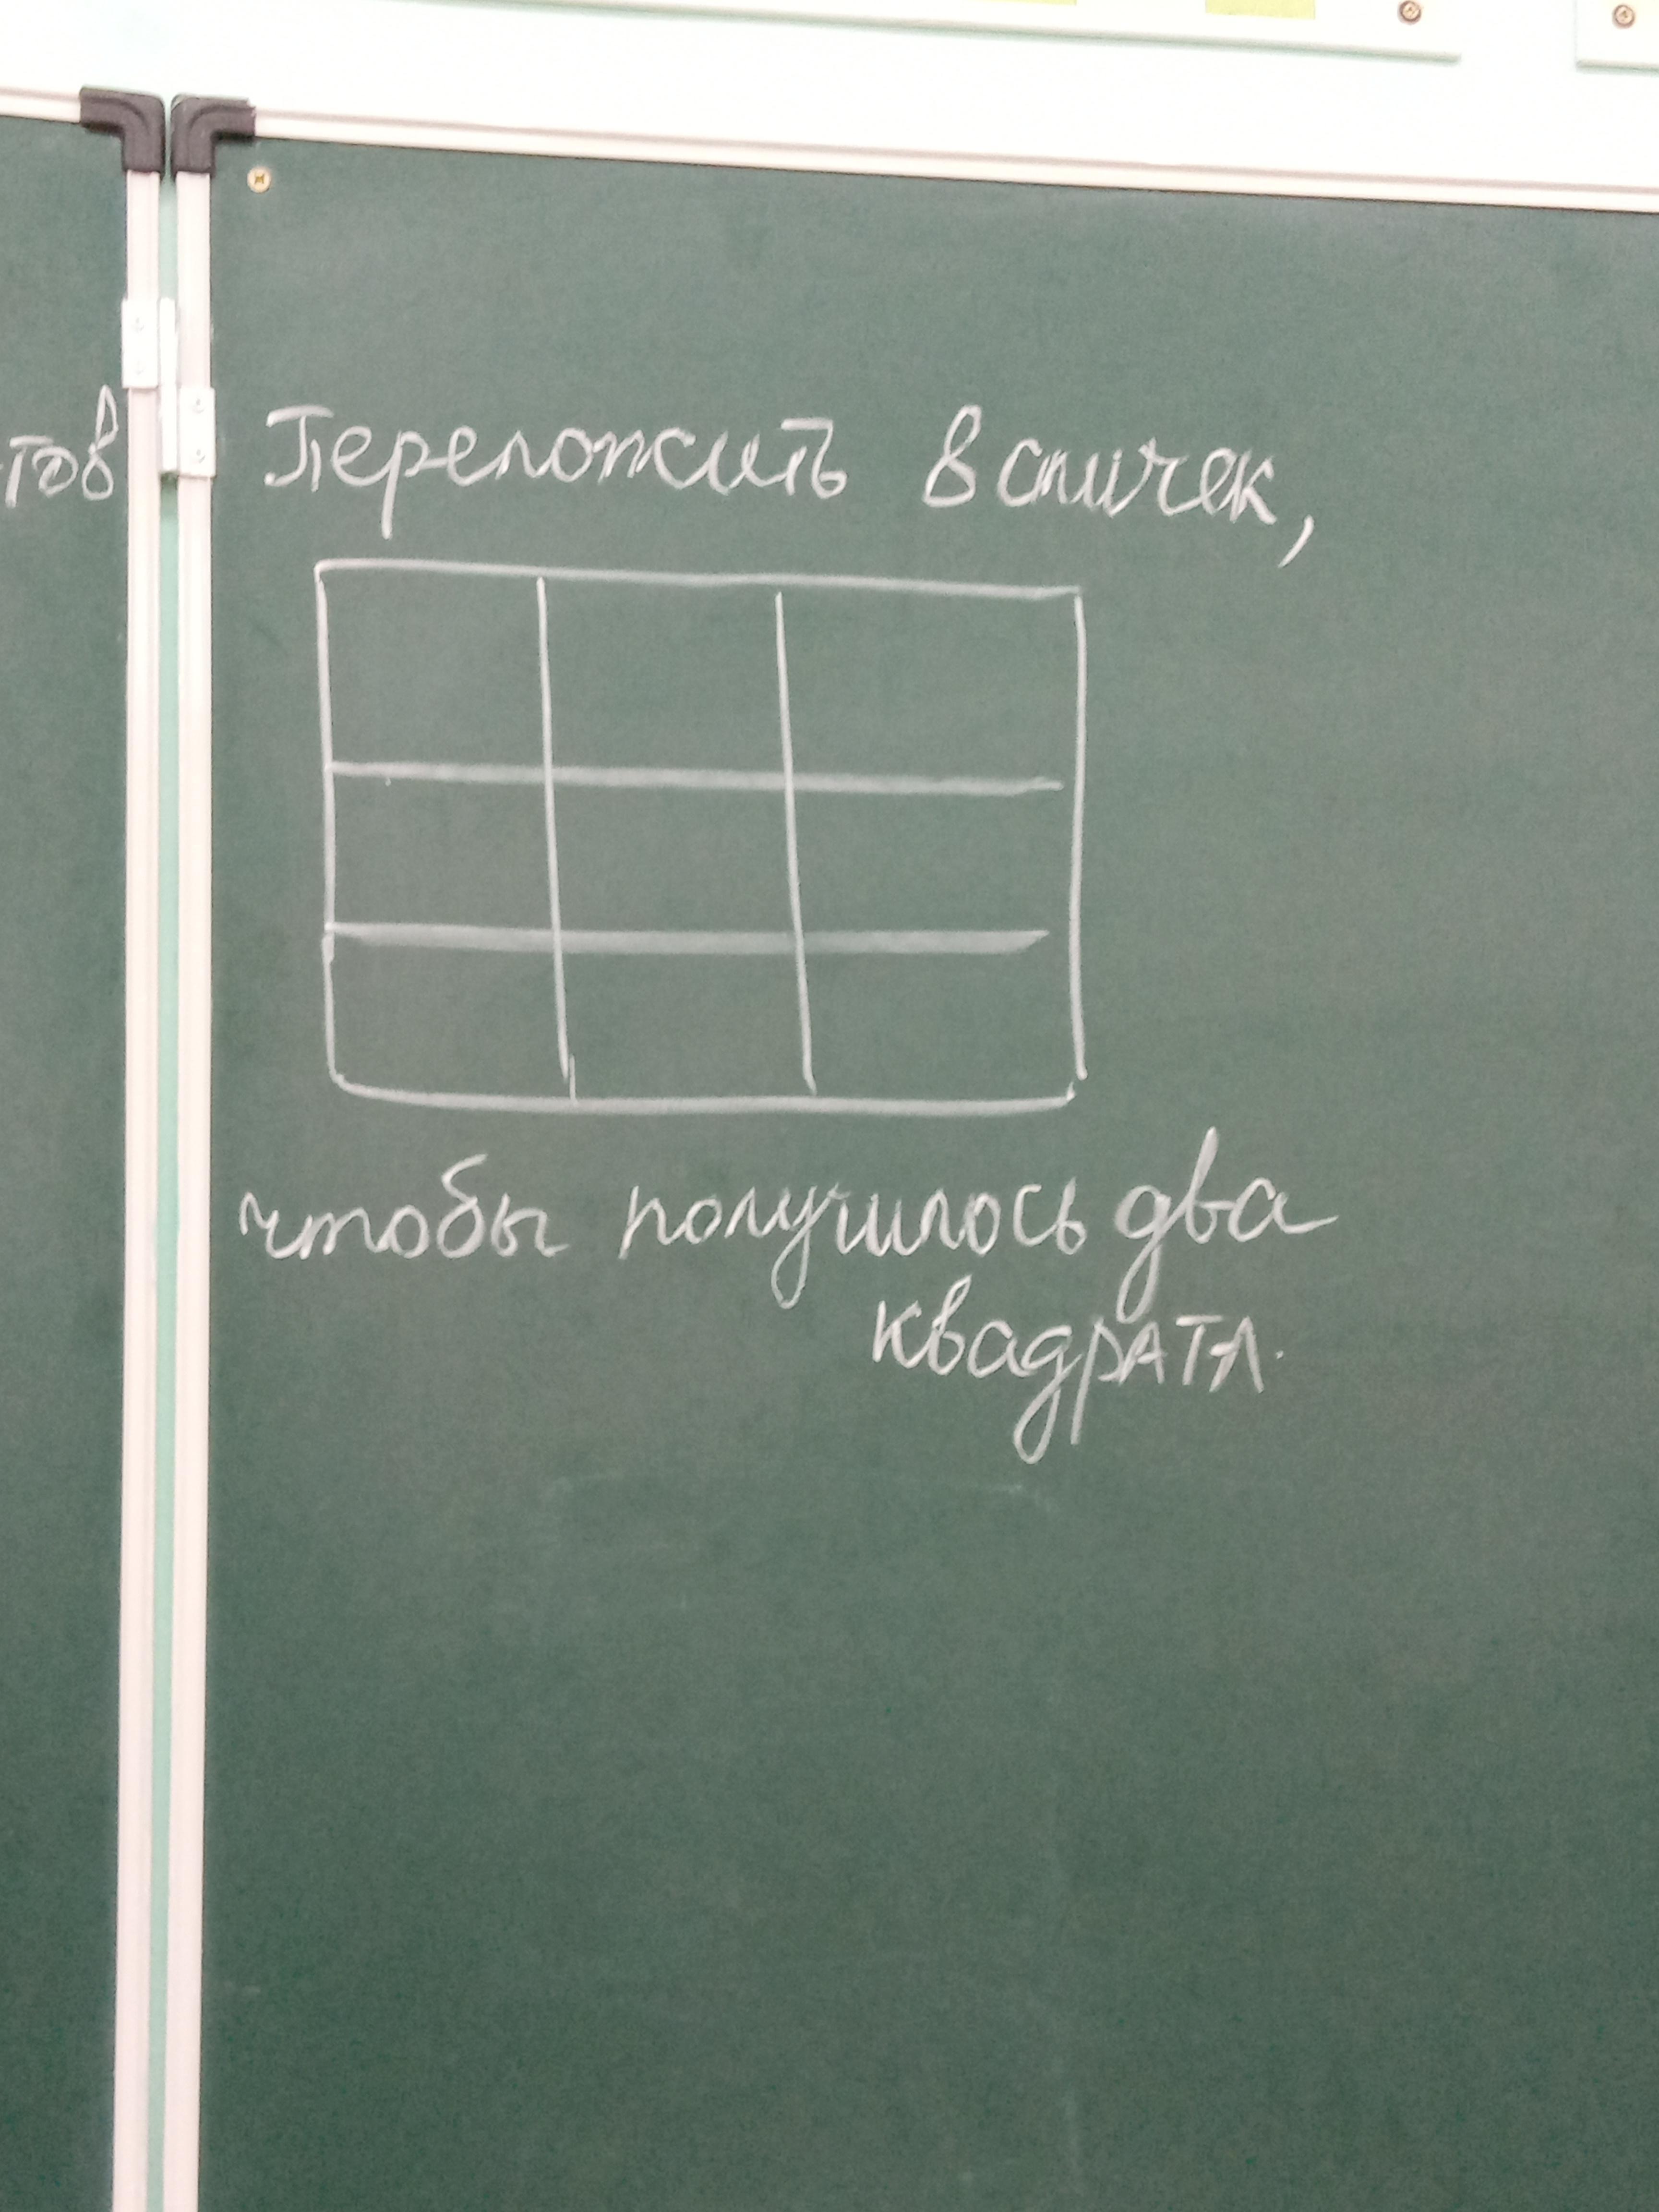 тов
Переложить 8 спичек,
чтобы получилось два
квадрата.